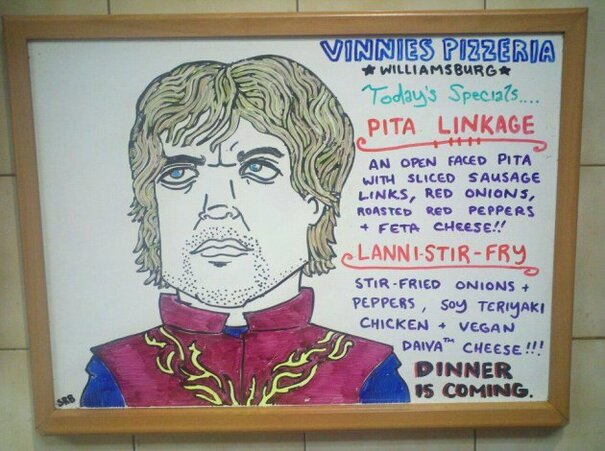 VINNIES PIZZERIA
★ WILLIAMSBURG ★
Today's Specials....
PITA LINKAGE
AN OPEN FACED PITA
WITH SLICED SAUSAGE
LINKS, RED ONIONS,
ROASTED RED PEPPERS
+ FETA CHEESE!!
LANNI-STIR-FRY
STIR-FRIED ONIONS +
PEPPERS, SOY TERIYAKI
CHICKEN + VEGAN
DAIYA™ CHEESE!!!
DINNER
IS COMING.
SRB